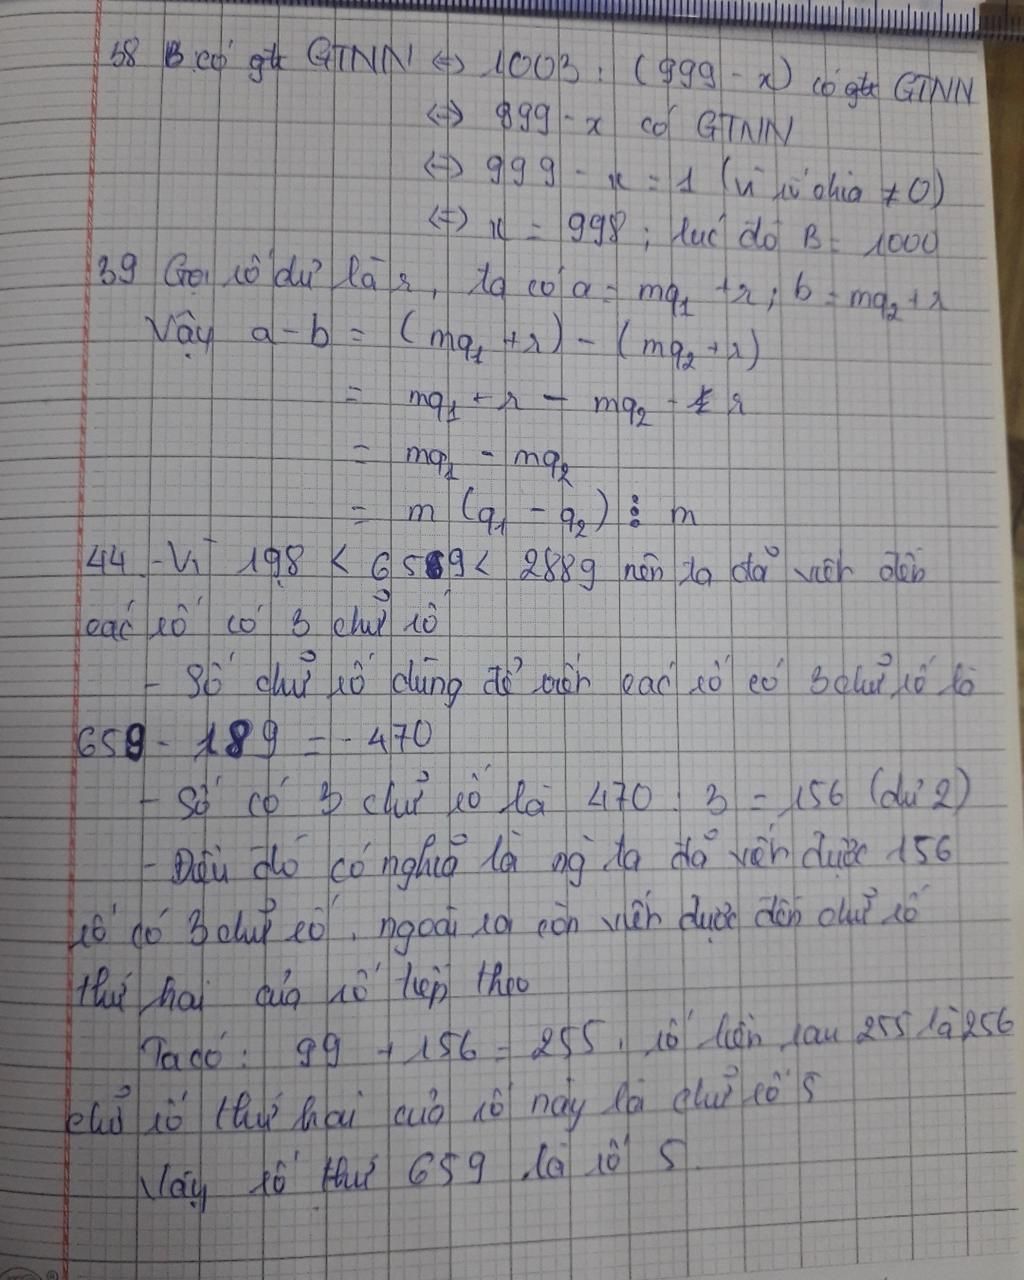 38 B có gtr GTNN <=> 1003 : (999 - x) có gtr GTNN
<=> 899 - x có GTNN
<=> 999 - x = 1 (vì số chia ≠ 0)
<=> x = 998 ; lúc đó B = 1000
39 Gọi số dư là r, ta có a = mq₁ + r ; b = mq₂ + r
Vậy a - b = (mq₁ + r) - (mq₂ + r)
= mq₁ + r - mq₂ - r
= mq₁ - mq₂
= m (q₁ - q₂) ⋮ m
44 - Vì 198 < 659 < 2889 nên ta đã viết đến
các số có 3 chữ số
- Số chữ số dùng để viết các số có 3 chữ số là
659 - 189 = - 470
- Số có 3 chữ số là 470 : 3 = 156 (dư 2)
- Điều đó có nghĩa là ng ta đã viết được 156
số có 3 chữ số, ngoài ra còn viết được đến chữ số
thứ hai của số tiếp theo
Ta có : 99 + 156 = 255, số liền sau 255 là 256
chữ số thứ hai của số này là chữ số 5
Vậy số thứ 659 là số 5